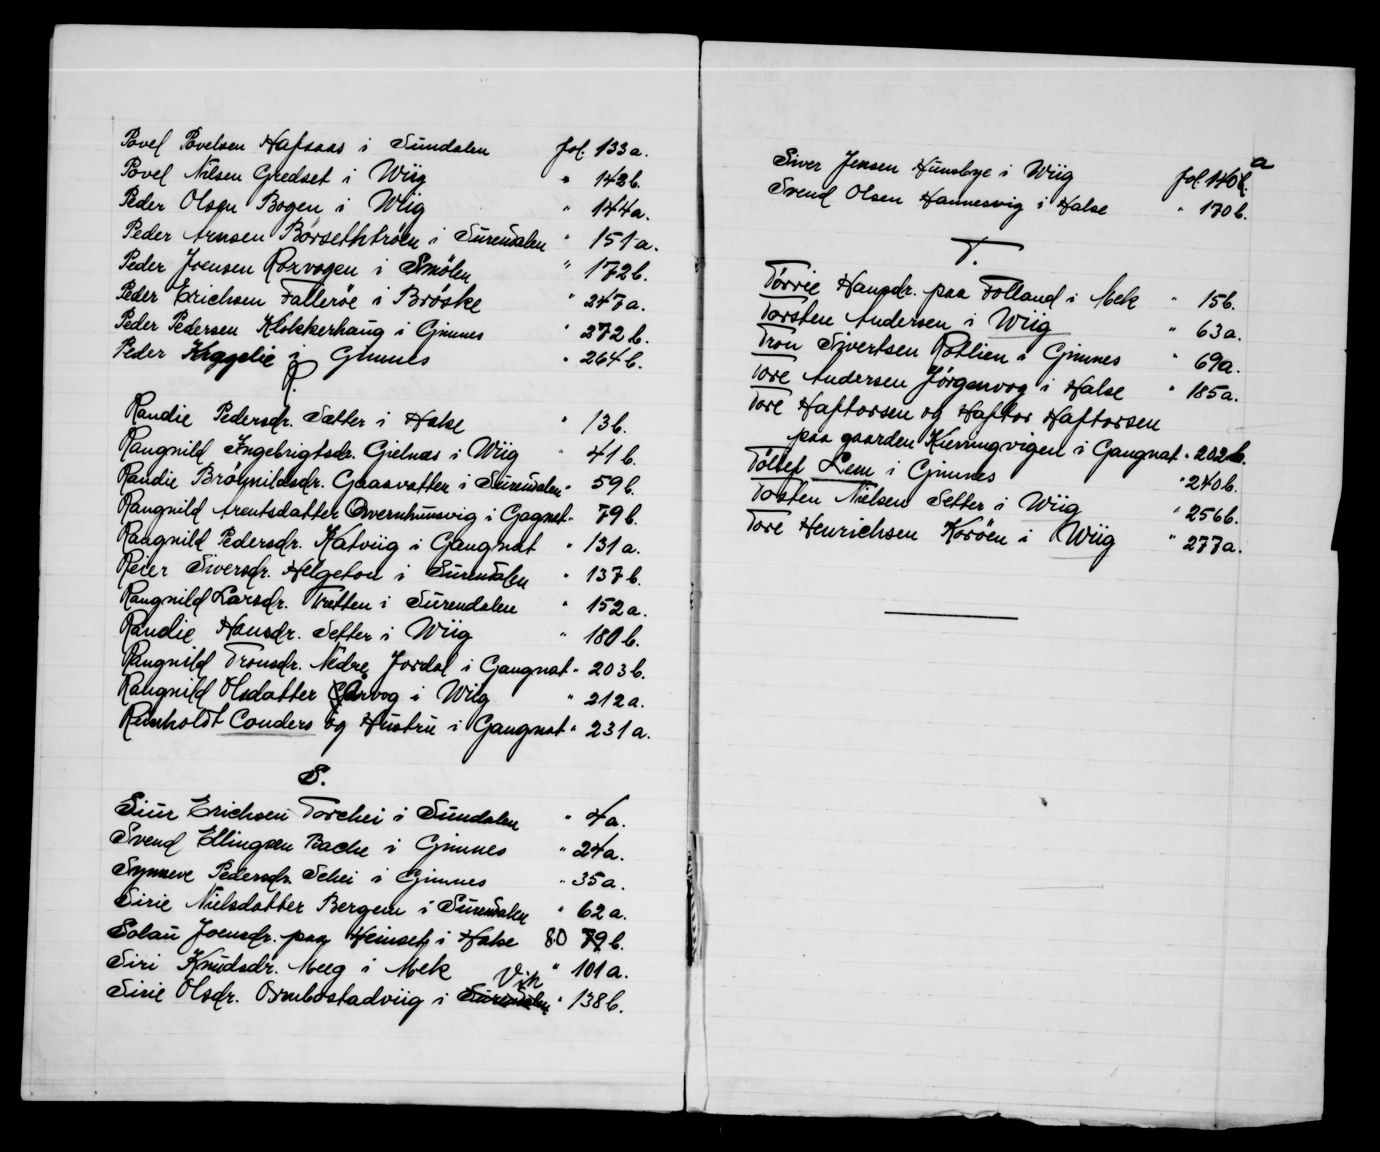 Povel Povelsen Hafsaas i Sundalen fol. 133a.
Povel Nilsen Gredset i Wiig " 142b.
Peder Olsen Bogen i Wiig " 144a.
Peder Arnsen Børsethtrøen i Surendalen " 151a.
Peder Joensen Rorvogen i Smølen " 172b.
Peder Erichsen Fallerøe i Brøske " 247a.
Peder Pedersen Klokkerhaug i Gimnes " 272b.
Peder i Gimnes " 264b.
R.
Randie Pedersdr. Sætter i Halse " 13b.
Rangnild Ingebrigtsdr. Gielnæs i Wiig " 41b.
Randie Brøynildsdr. Gaasvatter i Surendalen " 59b.
Rangnild Arentsdatter Overnhuusvig i Gagnat " 79b.
Rangnild Pedersdr. Katviig i Gangnat " 131a.
Reier Siversdr. Helgeton i Surendalen " 137b.
Rangnild Larsdr. Tretten i Surendalen " 152a.
Randie Hansdr. Setter i Wiig " 180b.
Rangnild Tronsdr. Nedre Jordal i Gangnat " 203b.
Rangnild Olsdatter Årvog i Wiig " 212a.
Reinholdt Conders og Hustru i Gangnat " 231a.
S.
Siur Erichsen Torchei i Sundalen " 4a.
Svend Ellingsen Bache i Gimnes " 24a.
Synneve Pedersdr. Schei i Gimnes " 35a.
Sirie Nielsdatter Bergem i Surendalen " 62a.
Solau Joensdr. paa Heinset i Halse 80 79b.
Siri Knudsdr. Meeg i Mek " 101a.
Sirie Olsdr. Ornbostadviig i Surendalen Vik " 138b.
Siver Jensen Hunsbye i Wiig fol. 140b. a
Svend Olsen Hannesvig i Halse " 170b.
T.
Tørrie Hansdr. paa Tolland i Mek " 15b.
Torsten Andersen i Wiig " 63a.
Tron Sivertsen Rotlien i Gimnes " 69a.
Tore Andersen Jørgenvog i Halse " 185a.
Tore Haftorsen og Haftor Haftorsen
paa gaarden Kierringvigen i Gangnat " 202b.
Tøllef Lem i Gimnes " 240b.
Tosten Nielsen Setter i Wiig " 256b.
Tore Henrichsen Korøen i Wiig " 277a.